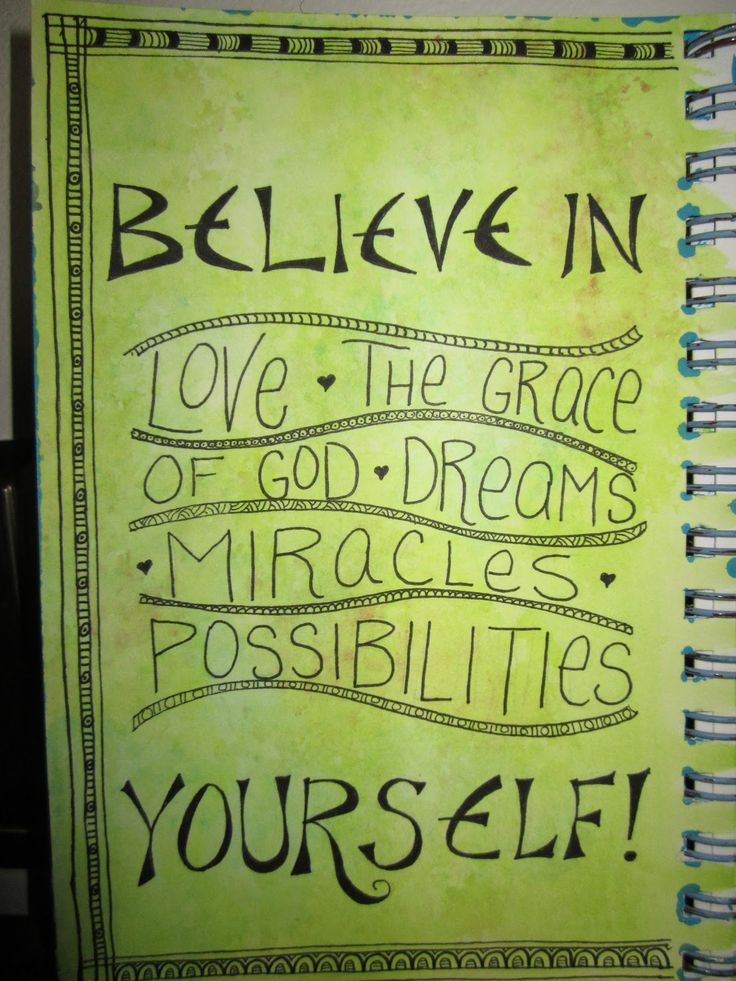 BELIEVE IN
LOVE ♥ THE GRACE
OF GOD ♥ DREAMS
♥ MIRACLES ♥
POSSIBILITIES
YOURSELF!